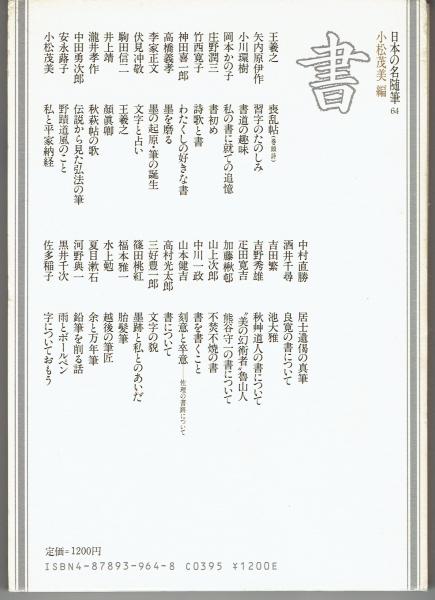 日本の名随筆64
小松茂美 編
書
王羲之 喪乱帖(巻頭詩)
矢内原伊作 習字のたのしみ
小川環樹 書道の趣味
岡本かの子 私の書に就ての追憶
庄野潤三 書初め
竹西寛子 詩歌と書
神田喜一郎 わたくしの好きな書
高橋義孝 墨を磨る
李家正文 墨の起原・筆の誕生
伏見冲敬 文字と占い
駒田信二 王羲之
井上靖 顔眞卿
瀧井孝作 秋萩帖の歌
中田勇次郎 伝説から見た弘法の筆
安永蕗子 野蹟道風のこと
小松茂美 私と平家納経
中村直勝 居士遺偈の真筆
酒井千尋 良寛の書について
吉田繁 池大雅
吉野秀雄 秋艸道人の書について
疋田寛吉 “美の幻術者”魯山人
加藤楸邨 熊谷守一の書について
山上次郎 不焚不焼の書
中川一政 書を書くこと
山本健吉 刻意と卒意—佐理の書跡について
高村光太郎 書について
三好豊一郎 文字の貌
篠田桃紅 墨跡と私とのあいだ
福本雅一 胎髪筆
水上勉 越後の筆匠
夏目漱石 余と万年筆
河野與一 鉛筆を削る話
黒井千次 雨とボールペン
佐多稲子 字についておもう
定価=1200円
ISBN4-87893-964-8 C0395 ¥1200E